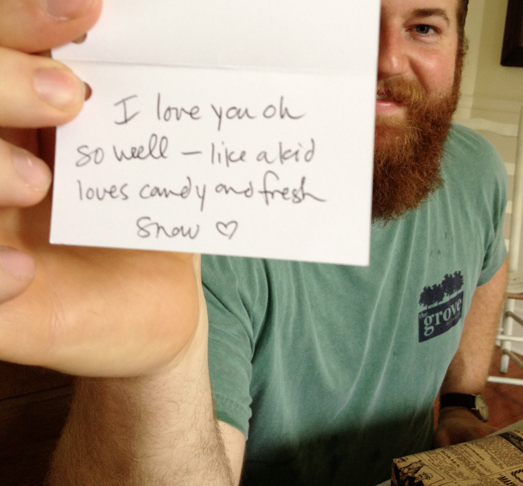 I love you oh
so well — like a kid
loves candy and fresh
snow ♡
the
grove